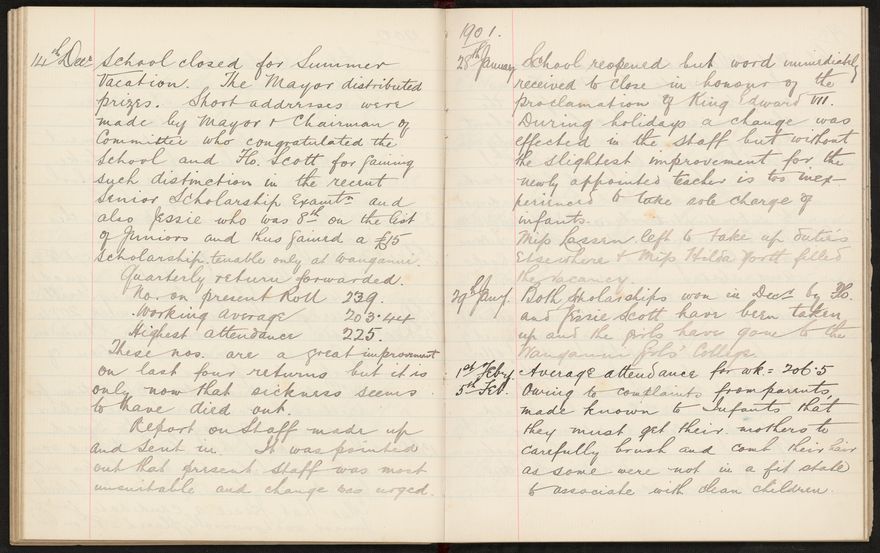 14th Decr School closed for Summer
Vacation. The Mayor distributed
prizes. Short addresses were
made by Mayor & Chairman of
Committee who congratulated the
School and Flo. Scott for gaining
such distinction in the recent
Senior Scholarship Examtn and
also Jessie who was 8th on the list
of Juniors and thus gained a £15
Scholarship, tenable only at Wanganui.
Quarterly return forwarded.
No. on present Roll 239.
Working average 203.44
Highest attendance 225.
These nos. are a great improvement
on last four returns but it is
only now that sickness seems
to have died out.
Report on Staff made up
and sent in. It was pointed
out that present staff was most
unsuitable and change was urged.
1901.
28th January School reopened but word immediately
received to close in honour of the
proclamation of King Edward VII.
During holidays a change was
effected in the staff but without
the slightest improvement for the
newly appointed teacher is too inex-
perienced to take sole charge of
infants.
Miss Lassen left to take up duties
Elsewhere & Miss Hilda filled
the vacancy.
29th Jany. Both scholarships won in Decr by Flo.
and Jessie Scott have been taken
up and the girls have gone to the
Wanganui Girls' College.
1st Feby Average attendance for wk = 206.5
5th Feb. Owing to complaints from parents
made known to Infants that
they must get their mothers to
carefully brush and comb their hair
as some were not in a fit state
to associate with clean children.